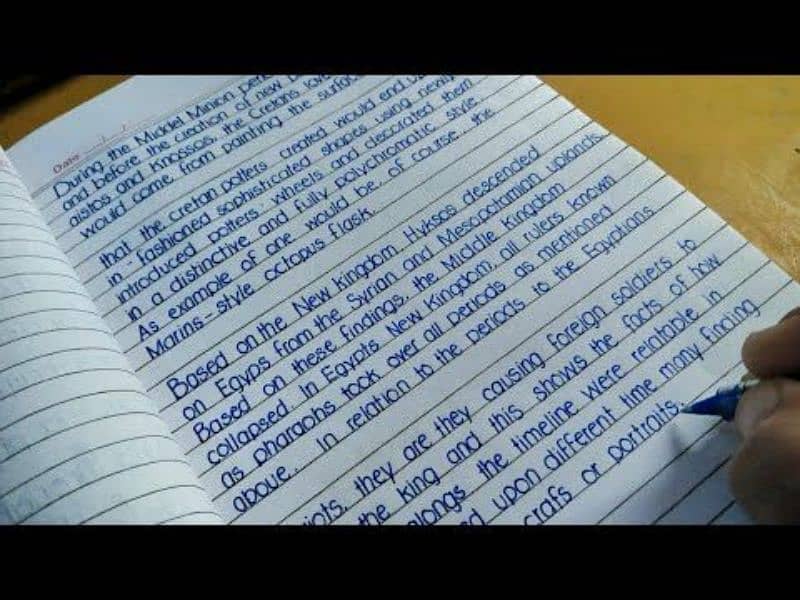 Date
During the Middel Minion
and before the creation of new
aistos and Knossos, the Cretans love
would come from painting the surface
that the cretan potters created would end
in - fashioned sophisticated shapes using newly
introduced potters' wheels and decorated them
in a distinctive and fully polychromatic style
As example of one would be, of course.. the
Marins - style octopus flask.
Based on the New kingdom, Hyksos descended
on Egyps from the Syrian and Mesopotamian uplands
Based on these findings, the Middle Kingdom
collapsed in Egypts New Kingdom, all rulers known
as pharaohs took over all periods as mentioned
above.. In relation to the periods to the Egyptians
they are they causing foreign soldiers to
the king and this shows the facts of how
alongs the timeline were relatable in
upon different time many finding
crafs or portraits.